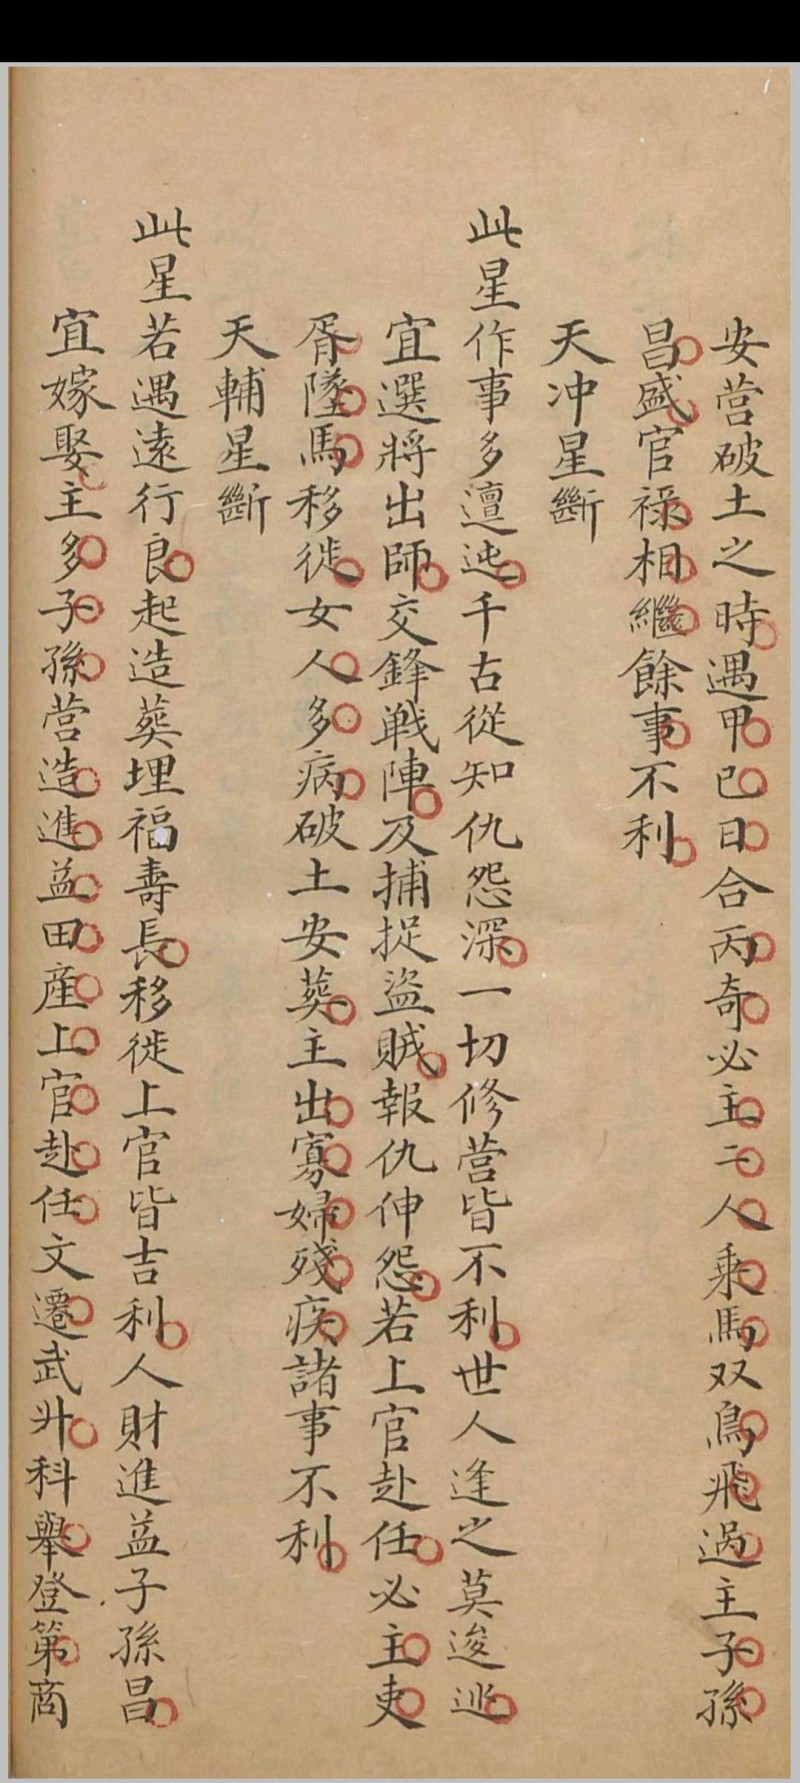 安营破土之時遇甲巳日合丙奇必主二人乘馬双鳥飛过主子孫
昌盛官禄相繼餘事不利
天冲星斷
此星作事多邅迍千古從知仇怨深一切修营皆不利世人逢之莫逡巡
宜選將出師交鋒戦陣及捕捉盜賊報仇伸怨若上官赴任必主吏
胥墜馬移徙女人多病破土安葬主出寡婦殘疾諸事不利
天輔星斷
此星若遇遠行良起造葬埋福壽長移徙上官皆吉利人財進益子孫昌
宜嫁娶主多子孫营造進益田產上官赴任文遷武升科舉登第商